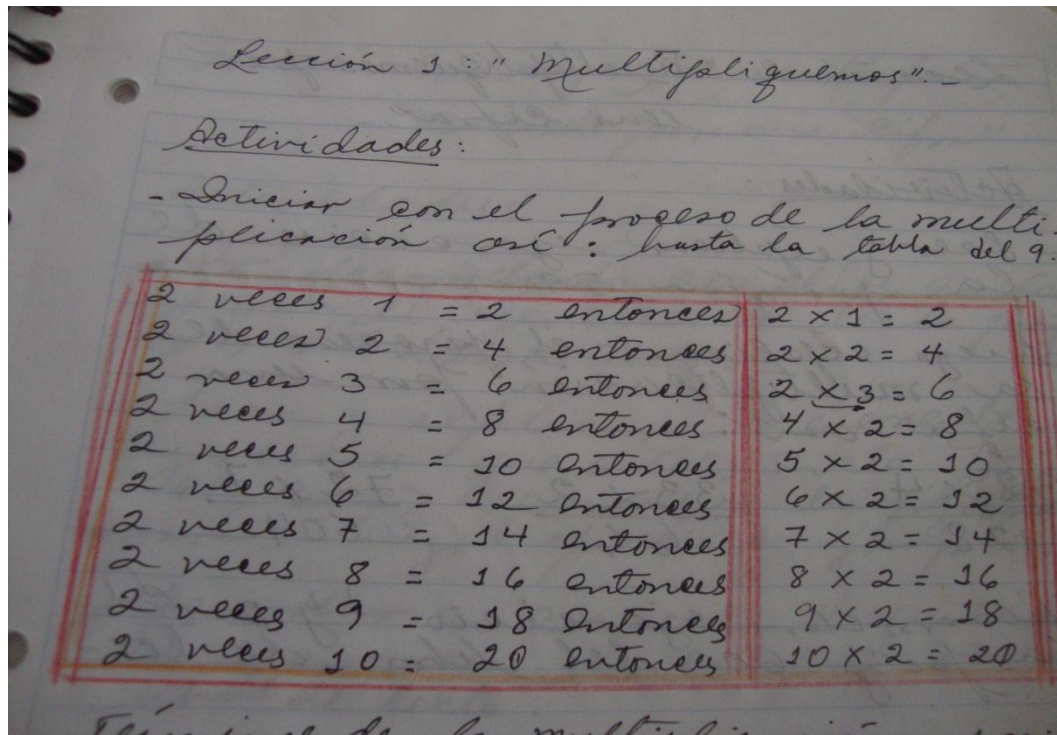 Lección 1: "Multipliquemos".-
Actividades:
- Iniciar con el proceso de la multi-
plicación así: hasta la tabla del 9.
2 veces 1 = 2 entonces 2 x 1 = 2
2 veces 2 = 4 entonces 2 x 2 = 4
2 veces 3 = 6 entonces 2 x 3 = 6
2 veces 4 = 8 entonces 4 x 2 = 8
2 veces 5 = 10 entonces 5 x 2 = 10
2 veces 6 = 12 entonces 6 x 2 = 12
2 veces 7 = 14 entonces 7 x 2 = 14
2 veces 8 = 16 entonces 8 x 2 = 16
2 veces 9 = 18 entonces 9 x 2 = 18
2 veces 10 = 20 entonces 10 x 2 = 20
de la multiplicación